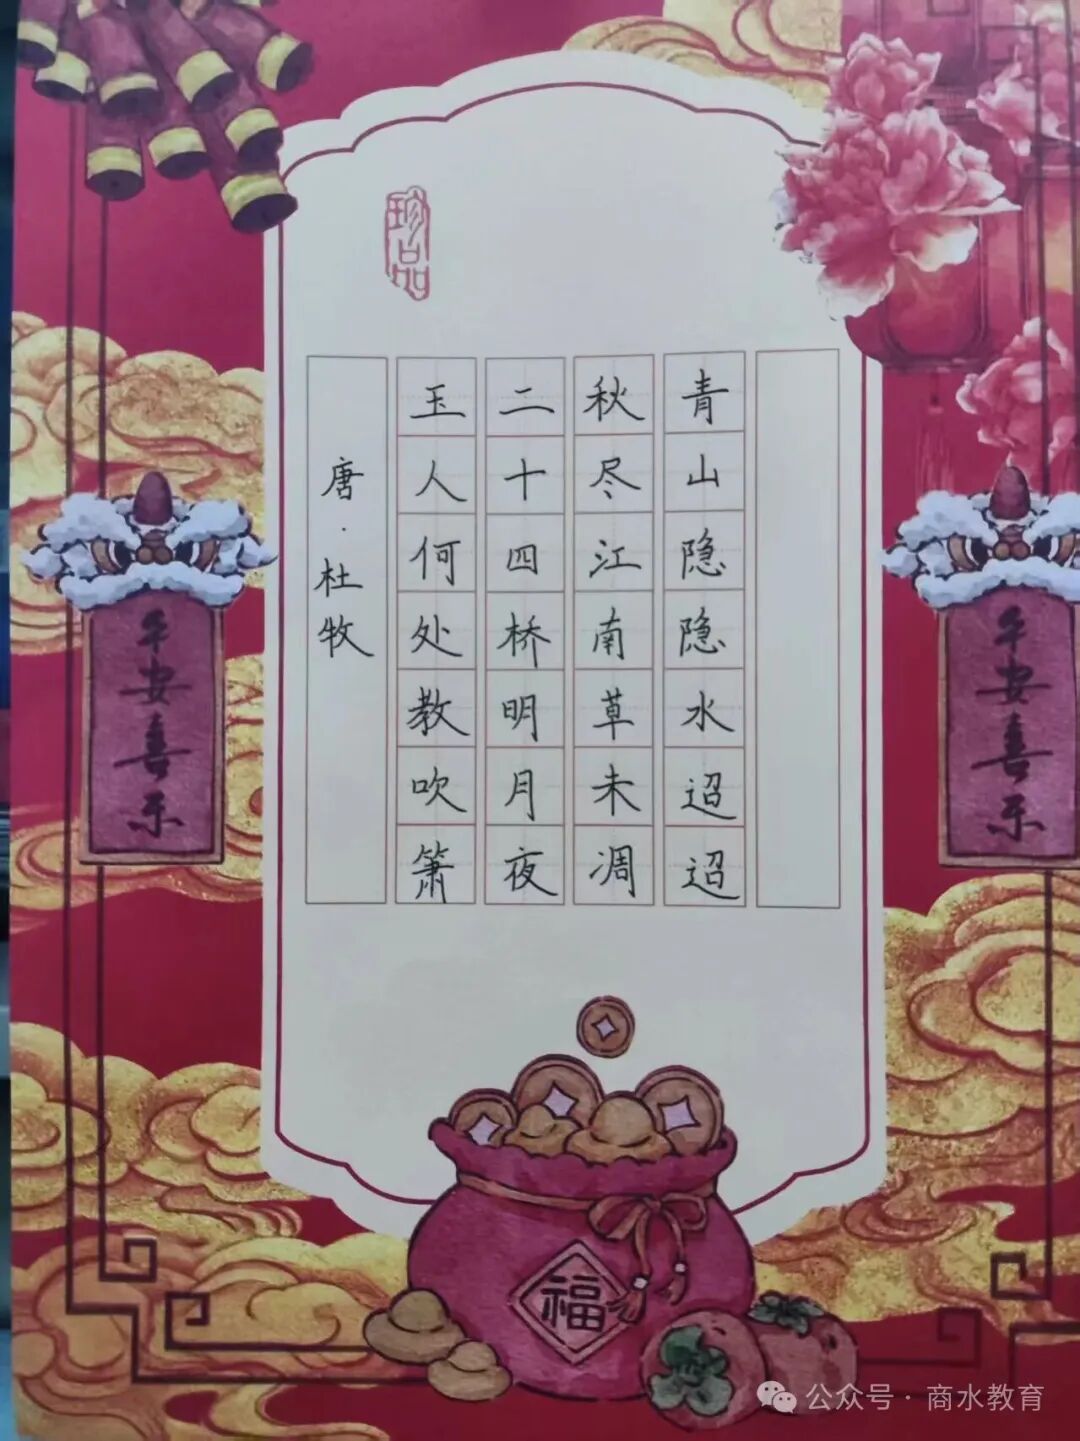 珍品
青山隐隐水迢迢
秋尽江南草未凋
二十四桥明月夜
玉人何处教吹箫
唐·杜牧
平安喜乐
平安喜乐
福
公众号·商水教育